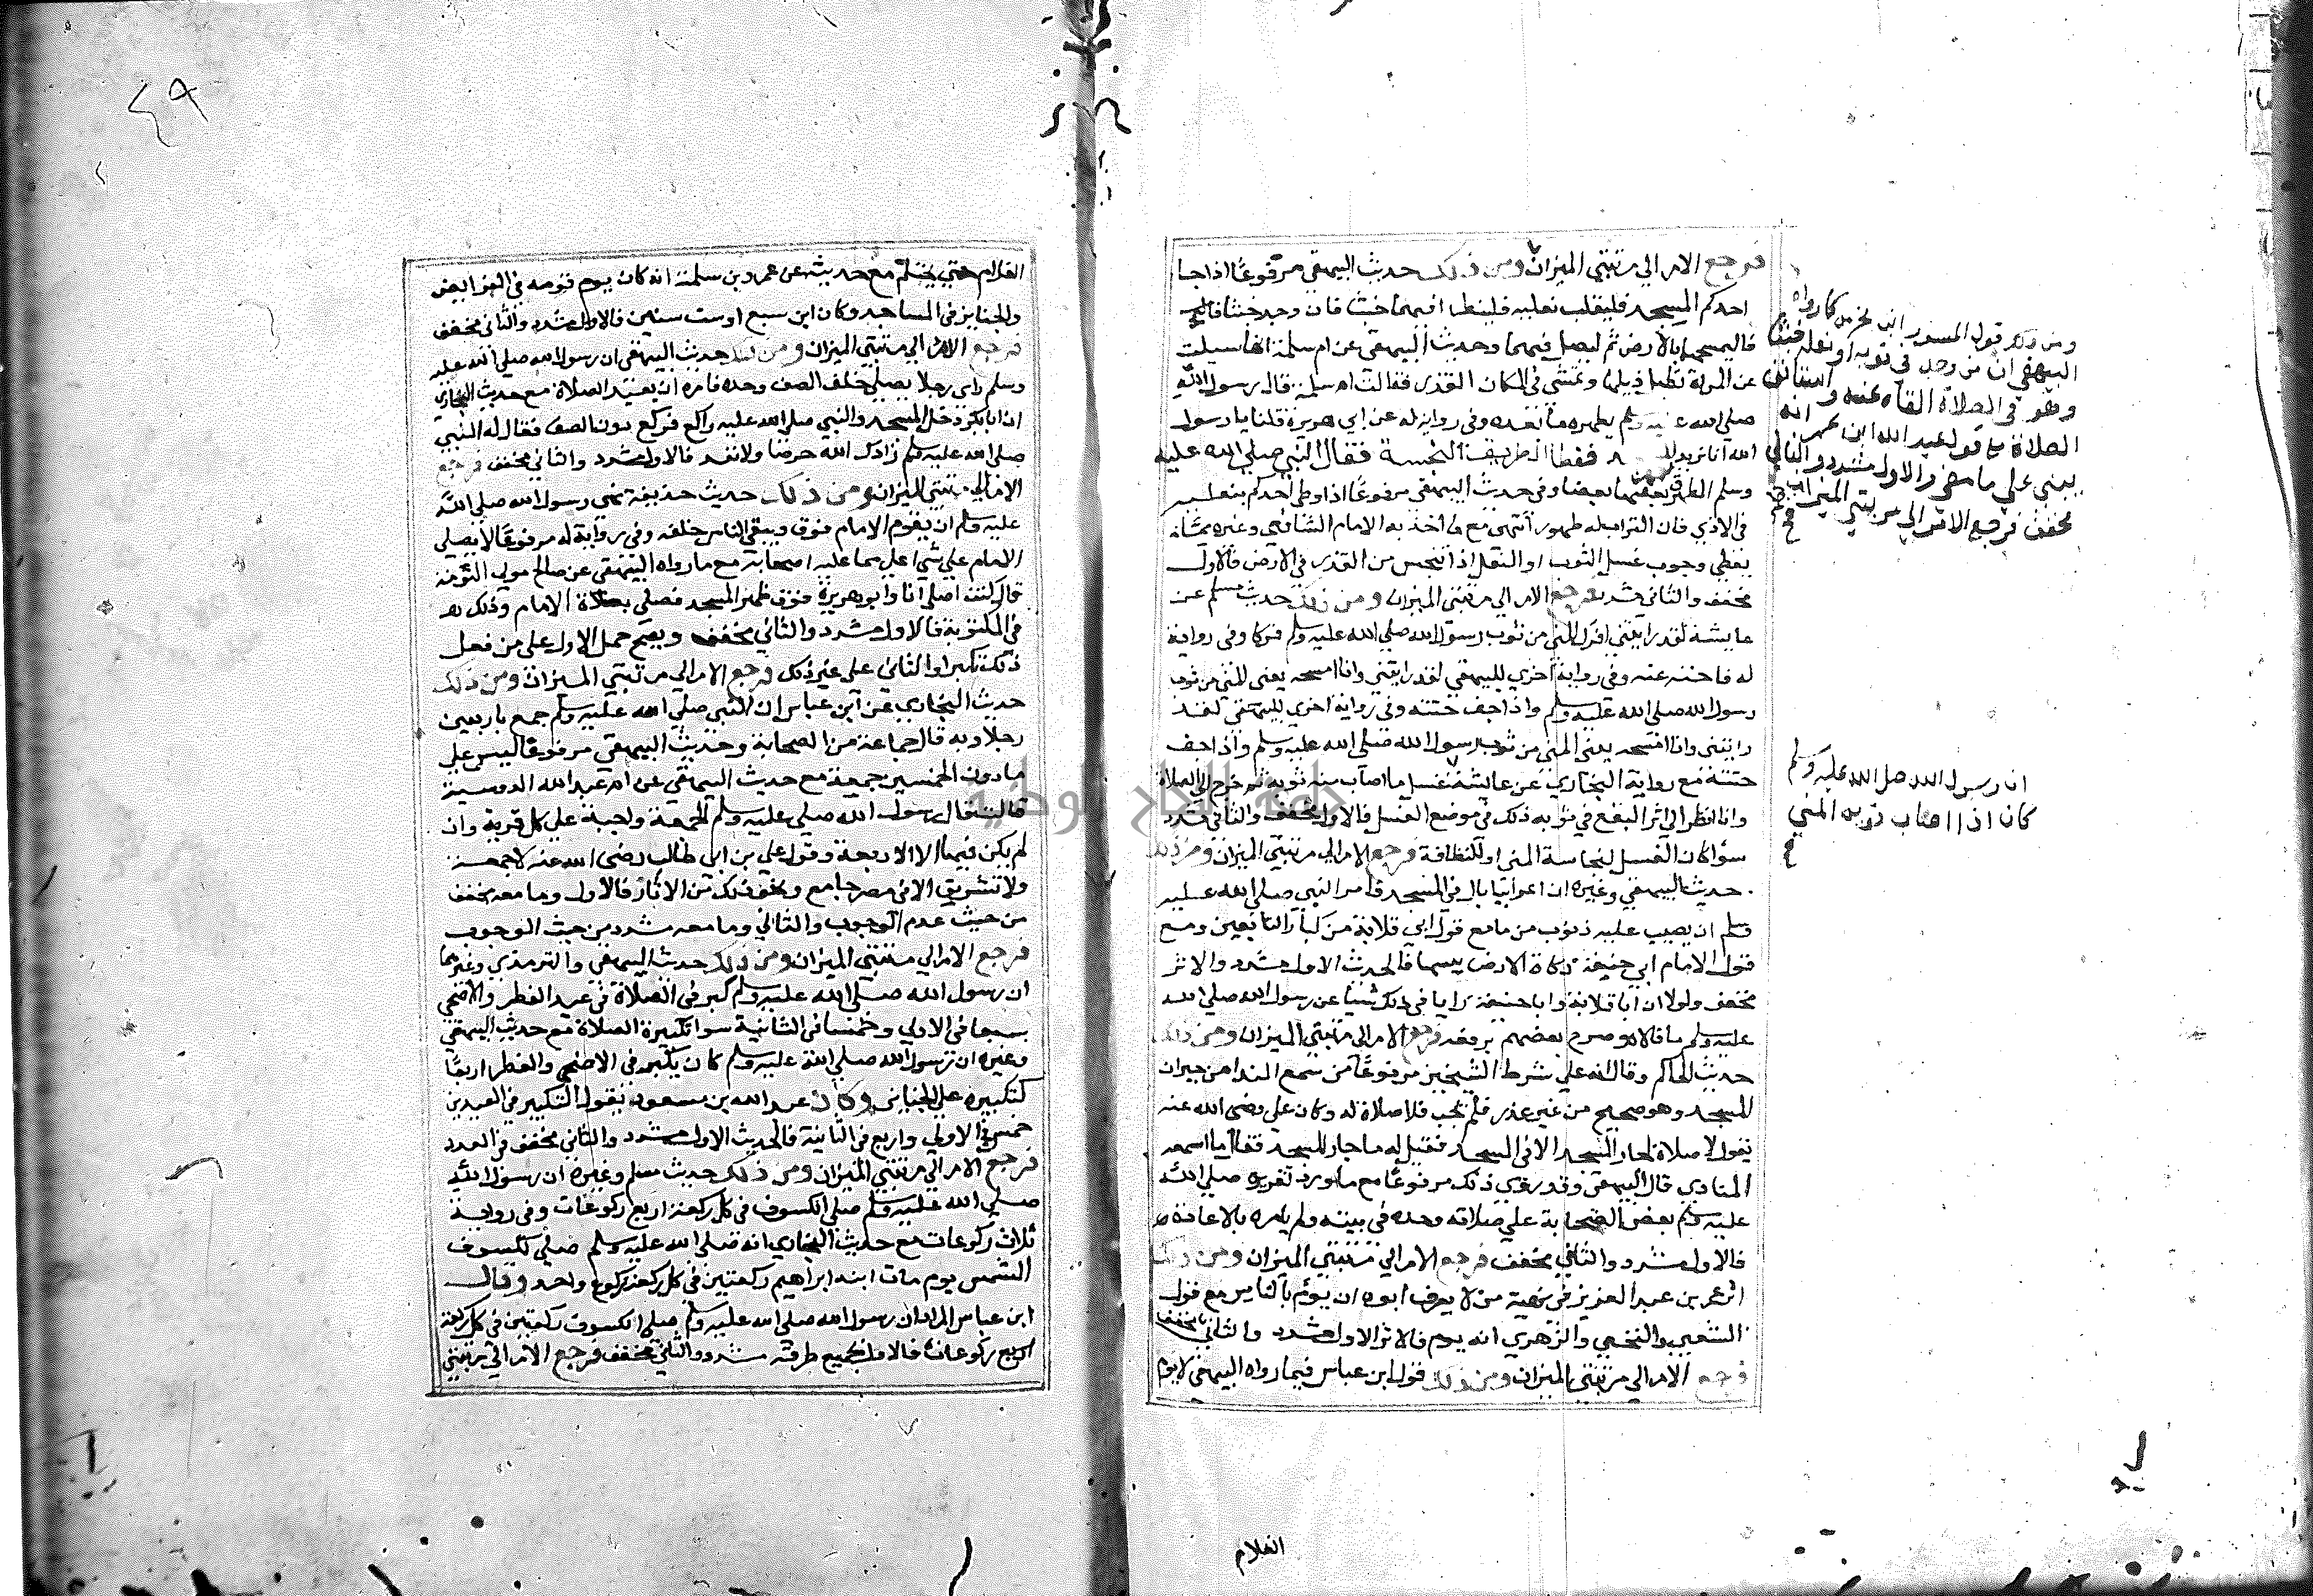 فرجع الامر الي مرتبتي الميزان ومن ذلك حديث البيهقي مرفوعا اذا جا
احدكم المسجد فليقلب نعليه فلينظر افيهما خبث فان وجد خبثا
فليمسحهما بالارض ثم ليصل فيهما وحديث البيهقي عن ام سلمة انها سيلت
عن المراة تطيل ذيلها وتمشي في المكان القذر فقالت ام سلمة قال رسول الله
صلي الله عليه وسلم يطهره ما بعده وفي رواية له عن ابي هريرة قلنا يا رسول
الله انا نريد المسجد فنطا الطريق النجسة فقال النبي صلي الله عليه
وسلم الطرق يطهر بعضها بعضا وفي حديث البيهقي مرفوعا اذا وطي احدكم بنعليه
في الاذي فان التراب له طهور انتهي مع ما اخذ به الامام الشافعي وغيره
بعضي وجوب غسل الثوب او النعل اذا تنجس من القذر في الارض فالاول
مخفف والثاني مشدد فرجع الامر الي مرتبتي الميزان ومن ذلك حديث مسلم عن
عايشة لقد رايتني افرك المني من ثوب رسول الله صلي الله عليه وسلم فركا وفي رواية
له فاحته عنه وفي رواية اخري للبيهقي لقد رايتني وانا امسحه يعني المني من ثوب
رسول الله صلي الله عليه وسلم واذا جف حتته وفي رواية اخري للبيهقي لقد
رايتني وانا امسحه يعني المني من ثوب رسول الله صلي الله عليه وسلم واذا جف
حتته مع رواية البخاري عن عايشة فغسل ما اصاب منه ثوبه ثم خرج الي الصلاة
وانا انظر الي اثر البقع في ثوبه ذلك في موضع الغسل فالاول مخفف والثاني مشدد
سوا كان الغسل لنجاسة المني او للنظافة فرجع الامر الي مرتبتي الميزان ومن ذلك
حديث البيهقي وغيره ان اعرابيا بال في المسجد فامر النبي صلي الله عليه
وسلم ان يصب عليه ذنوب من ما مع قول ابي قلابة من كبار التابعين ومع
قول الامام ابي حنيفة ذكاة الارض يبسها فالحديث الاول مشدد والاثر
مخفف ولولا ان ابا قلابة وابا حنيفة رايا في ذلك شيئا عن رسول الله صلي الله
عليه وسلم ما قالا به وصرح بعضهم برفعه فرجع الامر الي مرتبتي الميزان ومن ذلك
حديث الحاكم وقال انه علي شرط الشيخين مرفوعا من سمع الندا من جيران
المسجد وهو صحيح من غير عذر فلم يجب فلا صلاة له وكان علي رضي الله عنه
يقول لا صلاة لجار المسجد الا في المسجد فقيل له ما جار المسجد فقال ما اسمعه
المنادي قال البيهقي وقد روي ذلك مرفوعا مع ما ورد تقريره صلي الله
عليه وسلم بعض الصحابة علي صلاته وحده في بيته ولم يامره بالاعادة
فالاول مشدد والثاني مخفف فرجع الامر الي مرتبتي الميزان ومن ذلك
اثر عمر بن عبد العزيز في نهيه من لا يعرف ابوه ان يؤم بالناس مع قول
الشعبي والنخعي والزهري انه يوم فالاثر الاول مشدد والثاني مخفف
فرجع الامر الي مرتبتي الميزان ومن ذلك قول ابن عباس فيما رواه البيهقي لا يوم
الغلام
ومن ذلك قول المسور ابن مخرمة كما رواه
البيهقي ان من وجد في ثوبه او نعله خبثا
وهو في الصلاة القاه عنه و
الصلاة مع قول عبد الله ابن عمر انه
يبني علي ما مضي فالاول مشدد والثاني
مخفف فرجع الامر الي مرتبتي الميزان
ان رسول الله صلي الله عليه وسلم
كان اذا اصاب ثوبه المني
٤٩
الغلام حتي يحتلم مع حديثه عن عمرو بن سلمة انه كان يوم قومه في الفرايض
والجنايز في المساجد وكان ابن سبع او ست سنين فالاول مشدد والثاني مخفف
فرجع الامر الي مرتبتي الميزان ومن ذلك حديث البيهقي ان رسول الله صلي الله عليه
وسلم راي رجلا يصلي خلف الصف وحده فامره ان يعيد الصلاة مع حديث البخاري
ان ابا بكرة دخل المسجد والنبي صلي الله عليه راكع فركع دون الصف فقال له النبي
صلي الله عليه وسلم زادك الله حرصا ولا تعد فالاول مشدد والثاني مخفف فرجع
الامر الي مرتبتي الميزان ومن ذلك حديث حذيفة نهي رسول الله صلي الله
عليه وسلم ان يقوم الامام فوق ويبقي الناس خلفه وفي رواية له مرفوعا لا يصلي
الامام علي شي اعلي مما عليه اصحابه مع ما رواه البيهقي عن صالح مولي التومة
قال كنت اصلي انا وابو هريرة فوق ظهر المسجد فصلي بصلاة الامام وذلك
في المكتوبة فالاول مشدد والثاني مخفف ويصح حمل الاول علي من فعل
ذلك تكبرا والثاني علي غير ذلك فرجع الامر الي مرتبتي الميزان ومن ذلك
حديث البخاري عن ابن عباس ان النبي صلي الله عليه وسلم جمع باربعين
رجلا وبه قال جماعة من الصحابة وحديث البيهقي مرفوعا ليس علي
ما دون الخمسين جمعة مع حديث البيهقي عن ام عبد الله الدوسية
قالت قال رسول الله صلي عليه وسلم الجمعة واجبة علي كل قرية وان
لم يكن فيها الا الاربعة وقول علي بن ابي طالب رضي الله عنه لا جمعة
ولا تشريق الا في مصر جامع ونحو ذلك من الاثار فالاول وما معه مخفف
من حيث عدم الوجوب والثاني وما معه مشدد من حيث الوجوب
فرجع الامر الي مرتبتي الميزان ومن ذلك حديث البيهقي والترمذي وغيرهما
ان رسول الله صلي الله عليه وسلم كبر في الصلاة في عيد الفطر والاضحي
سبعا في الاولي وخمسا في الثانية سوا تكبيرة الصلاة مع حديث البيهقي
وغيره ان رسول الله صلي الله عليه وسلم كان يكبر في الاضحي والفطر اربعا
كتكبيره علي الجنايز وكان عبد الله بن مسعود يقول التكبير في العيدين
خمس في الاولي واربع في الثانية فالحديث الاول مشدد والثاني مخفف في العدد
فرجع الامر الي مرتبتي الميزان ومن ذلك حديث مسلم وغيره ان رسول الله
صلي الله عليه وسلم صلي الكسوف في كل ركعة اربع ركوعات وفي رواية
ثلاث ركوعات مع حديث البخاري انه صلي الله عليه وسلم صلي لكسوف
الشمس يوم مات ابنه ابراهيم ركعتين في كل ركعة ركوع واحد وقال
ابن عباس المراد ان رسول الله صلي الله عليه وسلم صلي الكسوف ركعتين في كل ركعة
اربع ركوعات فالاول بجميع طرقه مشدد والثاني مخفف فرجع الامر الي مرتبتي